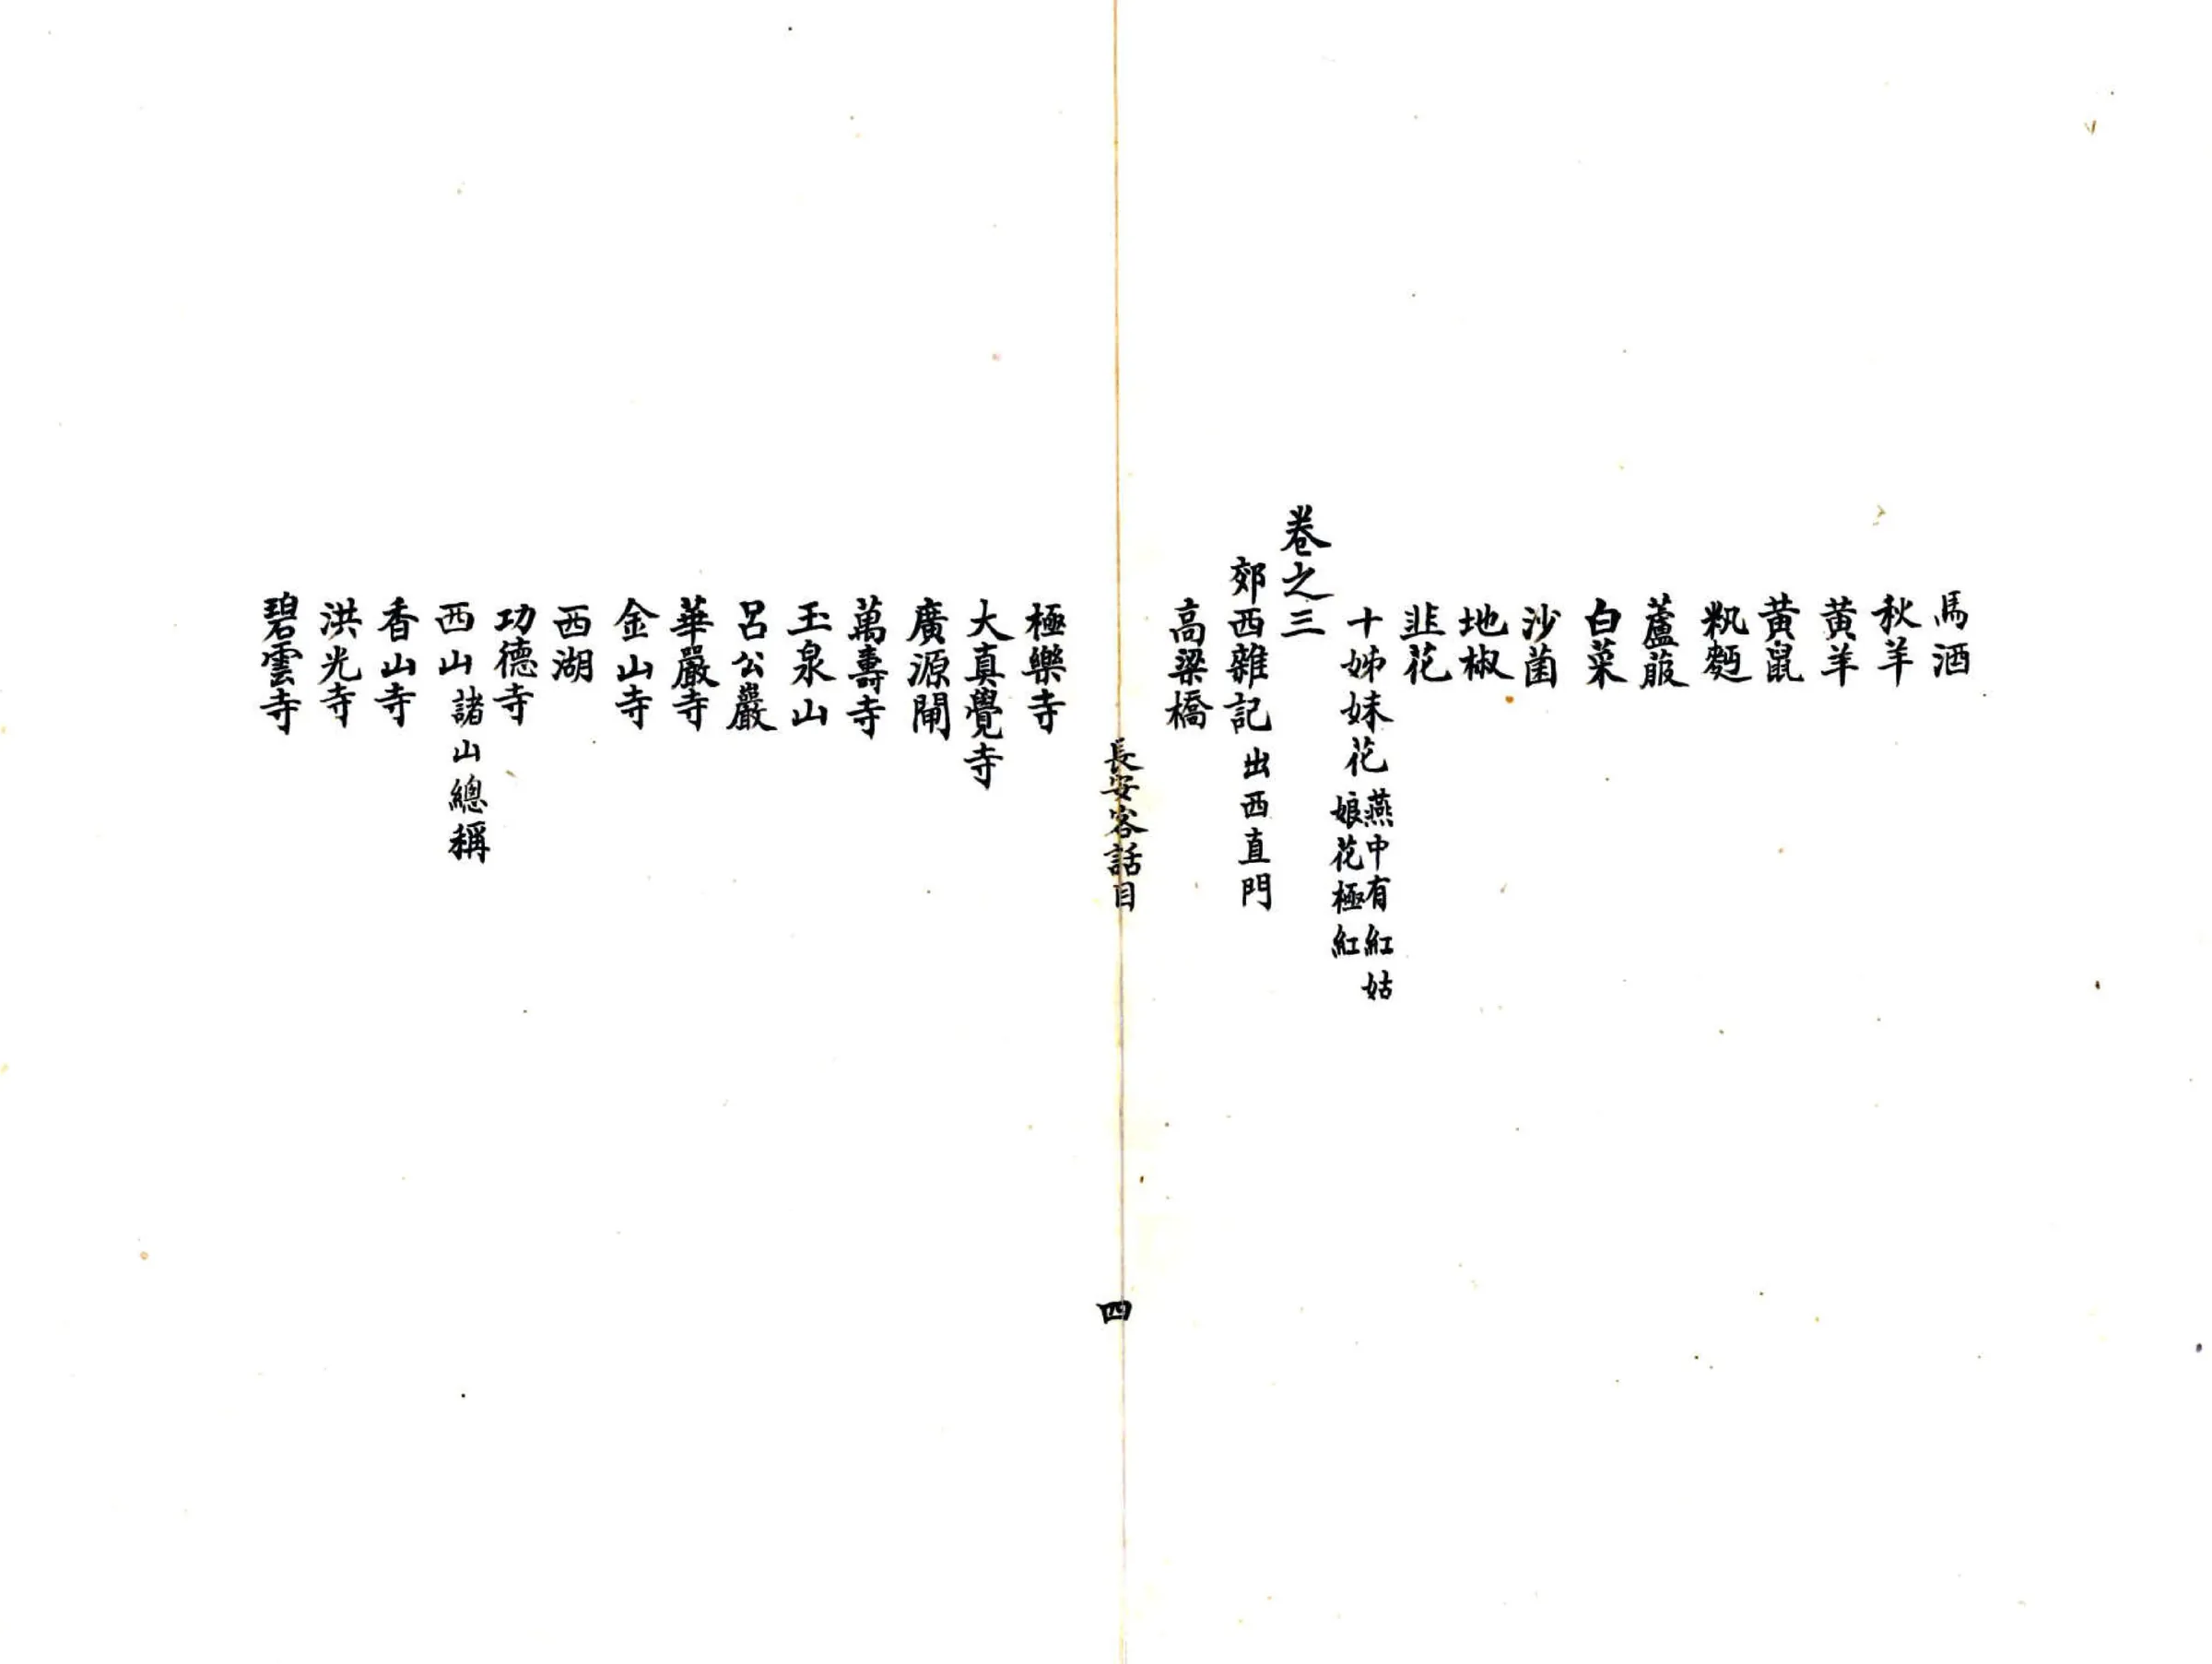 馬酒
秋羊
黄羊
黄鼠
麪
蘆菔
白菜
沙菌
地椒
韭花
十姊妹花 燕中有紅姑
娘花極紅
卷之三
郊西雜記 出西直門
高梁橋
長安客話目
四
極樂寺
大真覺寺
廣源閘
萬壽寺
玉泉山
呂公巖
華嚴寺
金山寺
西湖
功德寺
西山 諸山總稱
香山寺
洪光寺
碧雲寺